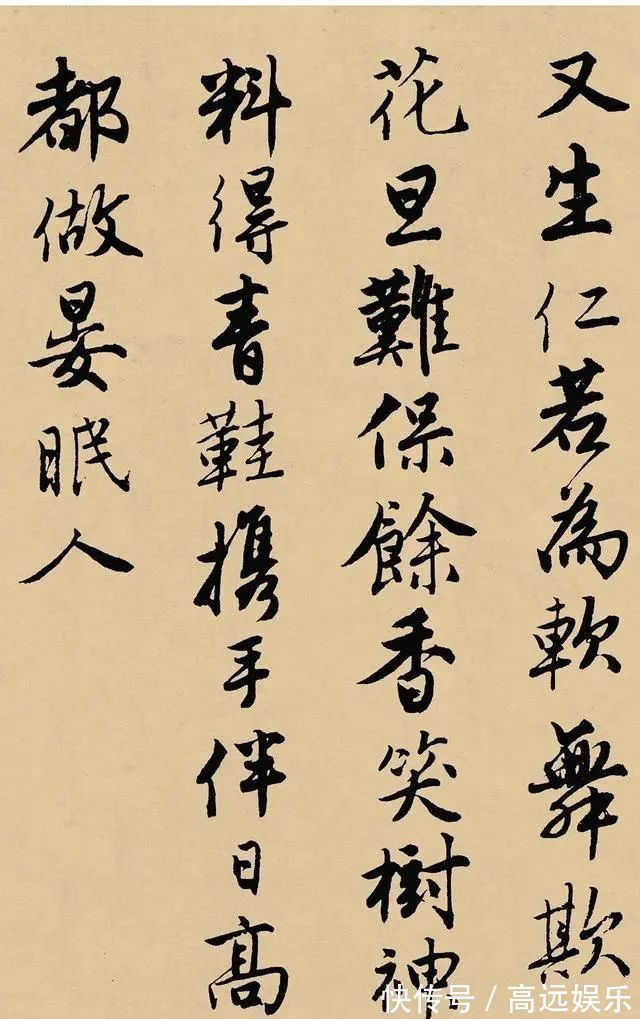 又生仁若為軟舞欺
花旦難保餘香笑樹神
料得青鞋攜手伴日高
都做晏眠人
快传号／高远娱乐